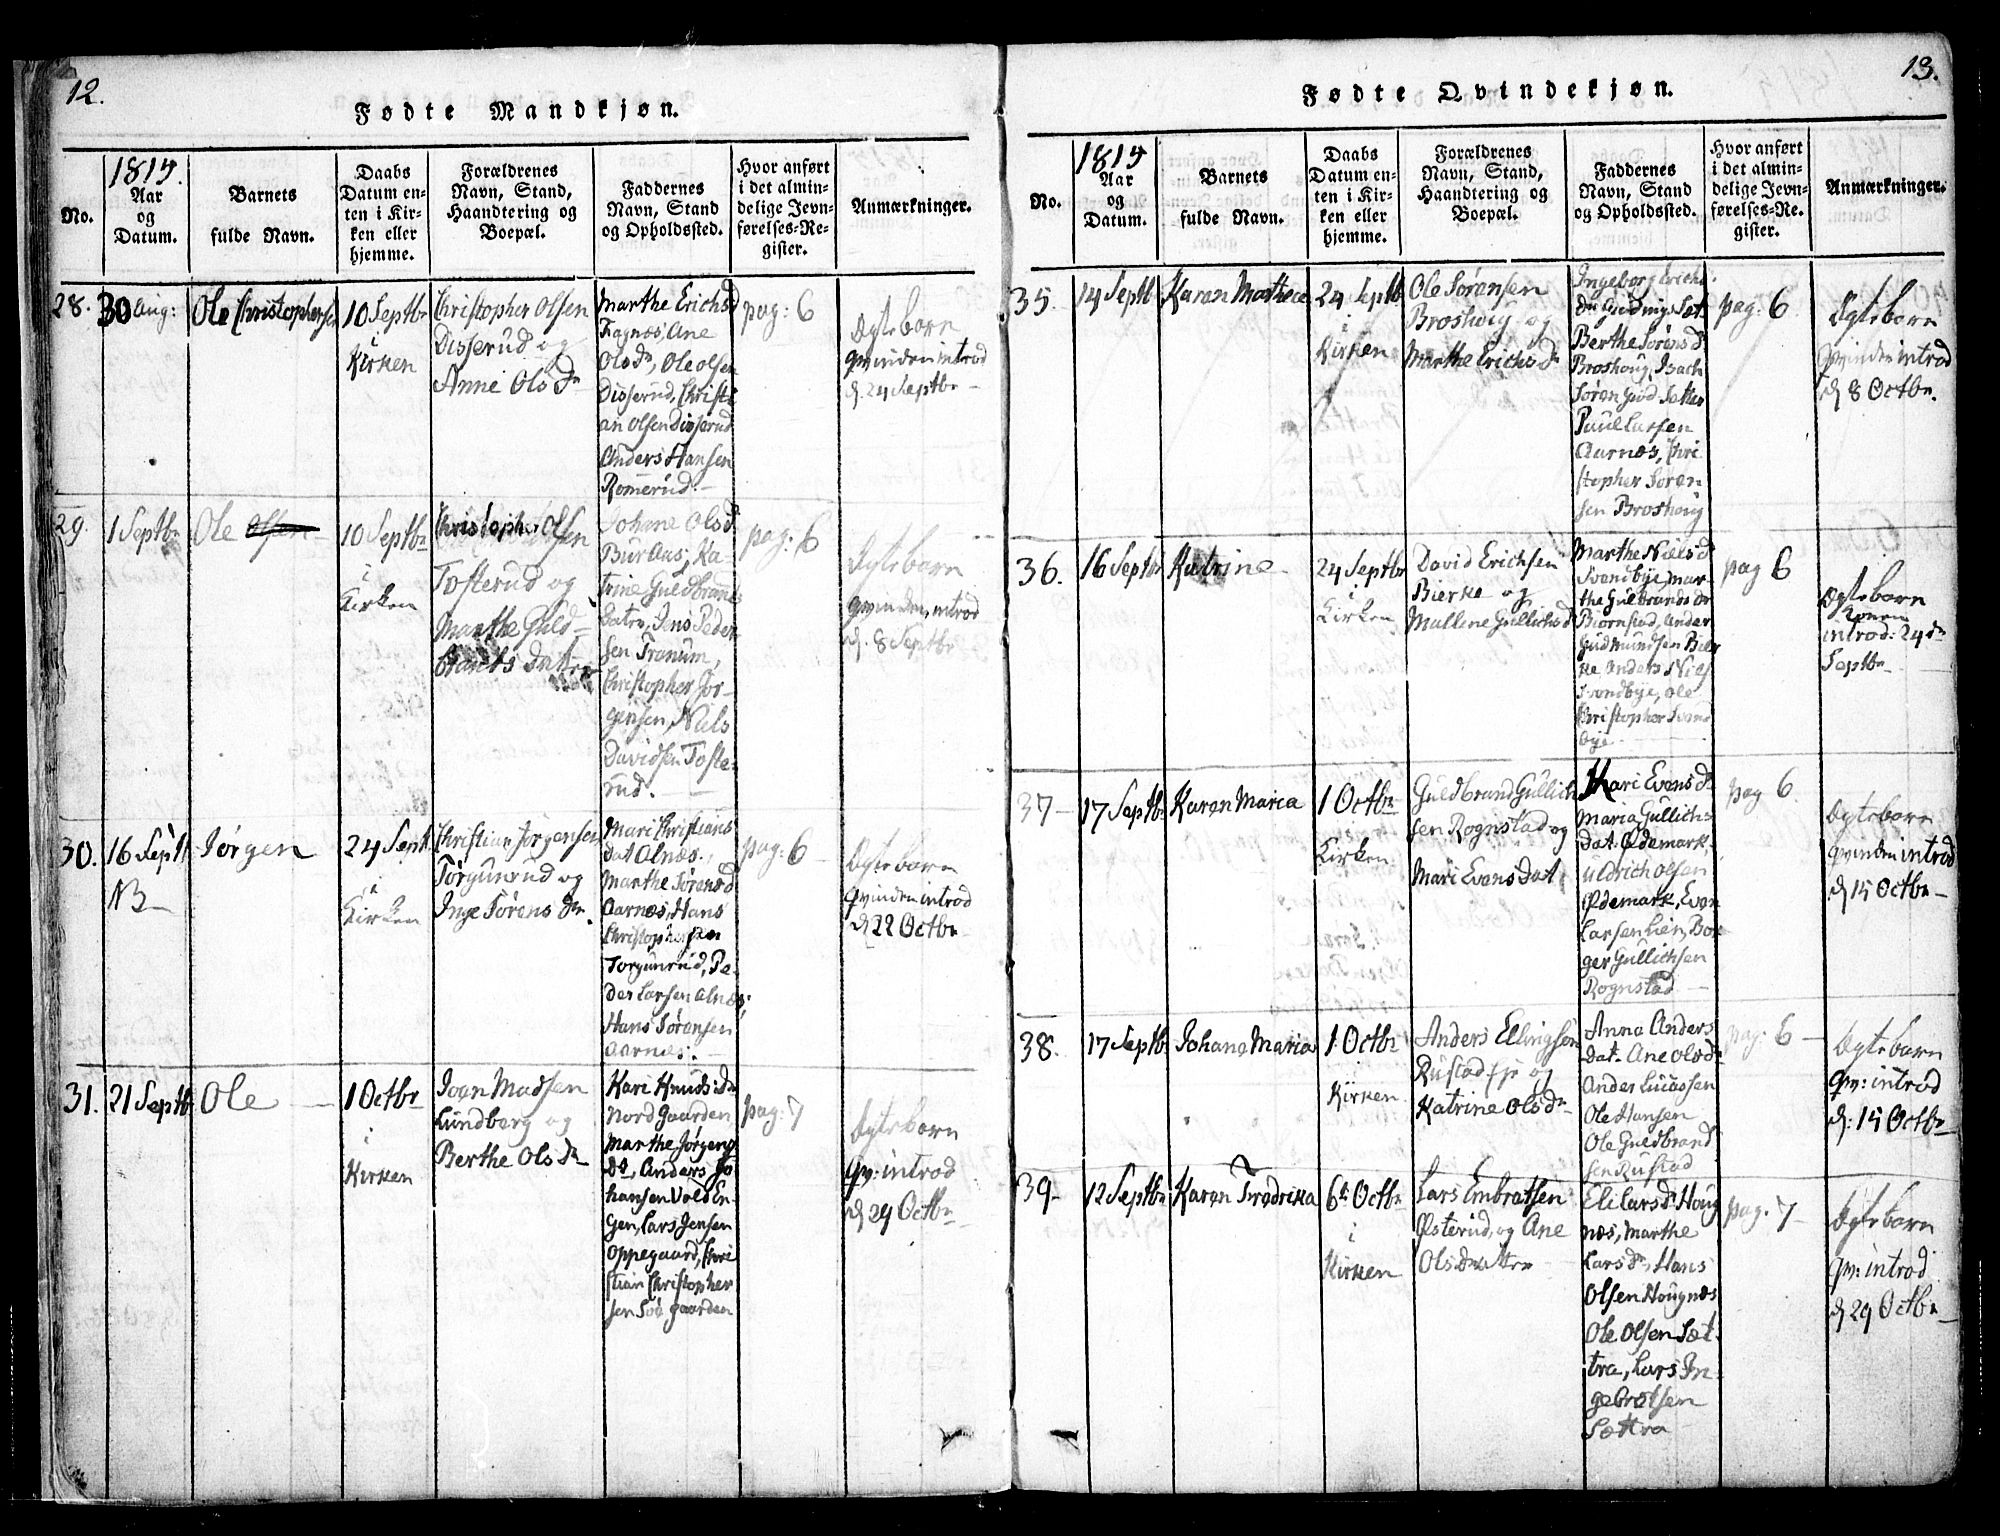 12.
Fødte Mandkjøn.
No.
1815.
Aar
og
Datum.
Barnets
fulde Navn.
Daabs
Datum en-
ten i Kir-
ken eller
hjemme.
Forældrenes
Navn, Stand,
Haandtering og
Boepæl.
Faddernes
Navn, Stand
og Opholdssted.
Hvor anført
i det almin-
delige Jevn-
førelses-Re-
gister.
Anmærkninger.
28.
30 Aug:
Ole Christophersen
10 Septbr
i
Kirken
Christopher Olsen
Disserud og
Anne Olsdr
Marthe Erichsd
Fagnæs, Ane
Olsdr, Ole Olsen
Disserud, Christi-
an Olsen Disserud
Anders Hansen
Romerud.
pag: 6
Ægtebarn
Qvinden introd
d. 24 Septbr
29.
1 Septbr
Ole Olsen
10 Septbr
i
Kirken
Christopher Olsen
Tosterud og
Marthe Guld-
brands Datter
Johane Olsdr
Buraas, Ka-
trine Guldbrands
Datre, Jens Peder-
sen Tranum,
Christopher Jør-
gensen, Niels
Davidsen Toste-
rud.
pag: 6
Ægtebarn
Qvinden introd
d. 8 Septbr
30.
16 Septbr
NB
Jørgen
24 Sept.
i
Kirken
Christian Jørgensen
Torgunrud og
Inge Sørens dr.
Mari Christians
dat Alnæs.
Marthe Sørensd
Aarnæs, Hans
Christophersen
Torgunrud, Pe-
der Larsen Alnæs,
Hans Sørensen
Aarnæs.
pag: 6
Ægtebarn
Qvinden introd
d 22 Octbr
31.
21 Septb
Ole
1 Octbr
i
Kirken
Joan Madsen
Lundberg og
Berthe Olsdr
Kari Knuds:dr
Nord Gaarden
Marthe Jørgens
Dt, Anders Jo
hansen Vold En-
gen, Lars Jensen
Oppegaard, Chri
stian Christopher
sen Sød gaarden
pag: 7
Ægtebarn
Qv: introd
d 29 Octbr
13.
Fødte Qvindekjøn.
No.
1815
Aar
og
Datum.
Barnets
fulde Navn.
Daabs
Datum en-
ten i Kir-
ken eller
hjemme.
Forældrenes
Navn, Stand,
Haandtering og
Boepæl.
Faddernes
Navn, Stand
og Opholdsted.
Hvor anført
i det almin-
delige Jevn-
førelses-Re-
gister.
Anmærkninger.
35.
14 Septb
Karen Mathea
24 Septbr
i
Kirken
Ole Sørensen
Broshoug og
Marthe Erichsdr
Ingeborg Erichs
Berthe Sørensd
Broshoug, Isach
Paul Larsen
Aarnæs, Chri
stopher Søren
sen Broshoug
pag: 6
Ægtebarn
Qvinden introd
d 8 Octbr.
36.
16 Septbr
Katrine
24 Septbr
i
Kirken
David Erichsen
Bierke og
Mallene Gullichsd
Marthe Nielsd
Svendbye, mar-
the Gulbrandsdr
Biørnstad, Ander
Gudmundsen Bier
ke Anders Niels
Svendbye, Ole
Christopher Svend
bye
pag 6
Ægtebarn
Konen
introd: 24de
Septbr
37
17 Septbr
Karen Maria
1 Octbr
i
Kirken
Guldbrand Gullich
sen Rognstad og
Mari Evensdat
Kari Evensdr
Maria Gullichs
dat. Ødemark,
uldrich Olsen
Ødemark, Even
Larsen Lien, Bor
ger Gullichsen
Rognstad
pag 6
Ægtebarn
Qvinden introd
d 15 Octbr
38.
17 Septbr
Johane Maria
1 Octbr
i
Kirken
Anders Ellingsen
Rustad eje og
Katrine Olsdr
Anna Anders
dat. Ane Olsdr
Ander Lucassen
Ole Hansen
Ole Guldbrand
sen Rustad
pag: 6
Ægtebarn
Qv: introd
d: 15 Octbr
39
12 Septbr
Karen Fredrika
6te Octbr
i
Kirken
Lars Embretsen
Østerud, og Ane
Olsdatter
Eli Larsdr Houg
næs, Marthe
Larsdr, Hans
Olsen Hougnæs
Ole Olsen Sæt-
tra, Lars In-
gebretsen
Sættra
pag: 7
Ægtebarn
Qv: introd
d 29 Octbr